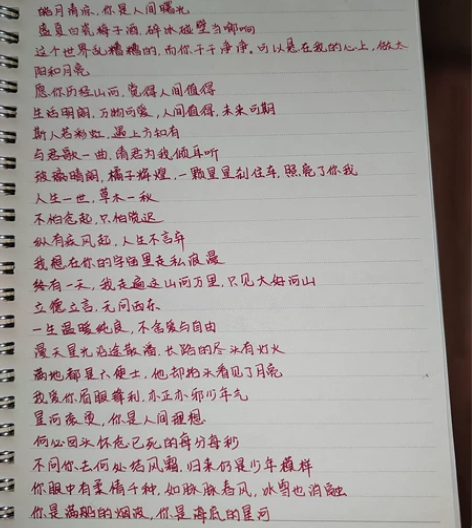 皓月清凉,你是人间曙光
盛夏白瓷梅子酒,碎冰碰壁当啷响
这个世界乱糟糟的,而你干干净净。可以悬在我的心上,做太
阳和月亮
愿你历经山河,觉得人间值得
生活明朗,万物可爱,人间值得,未来可期
斯人若彩虹,遇上方知有
与君歌一曲,请君为我倾耳听
玻璃晴朗,橘子辉煌,一颗星星刹住车,照亮了你我
人生一世,草木一秋
不怕念起,只怕觉迟
纵有疾风起,人生不言弃
我想在你的字句里走私浪漫
终有一天,我走遍这山河万里,只见大好河山
立德立言,无问西东
一生温暖纯良,不舍爱与自由
漫天星光沿途散播,长路的尽头有灯火
满地都是六便士,他却抬头看见了月亮
我爱你眉眼锋利,亦正亦邪少年气
星河滚烫,你是人间理想
何必回头怀念已死的每分每秒
不问你去何处沾风霜,归来仍是少年模样
你眼中有柔情千种,如脉脉春风,冰雪也消融
你是满船的烟波,你是海底的星河